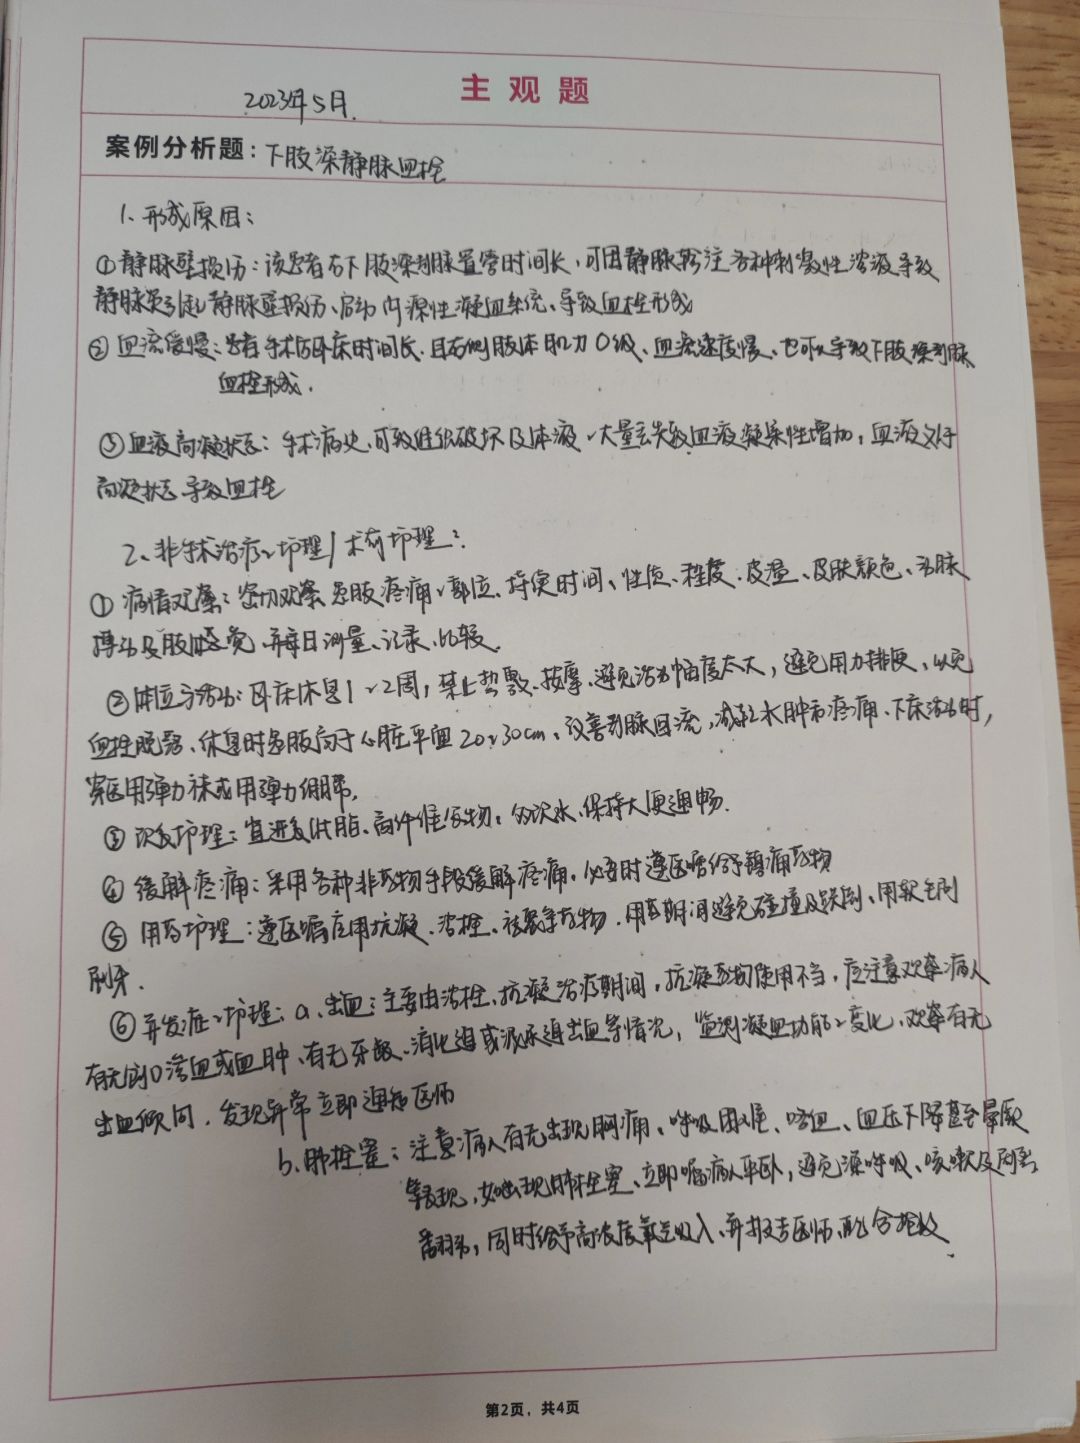 主观题
2023年5月.
案例分析题：下肢深静脉血栓
1、形成原因：
①静脉壁损伤：该患者右下肢深静脉置管时间长，可因静脉输注各种刺激性溶液导致
静脉炎引起静脉壁损伤、启动内源性凝血系统、导致血栓形成
②血流缓慢：患者手术后卧床时间长、且右侧肢体肌力0级、血流速度慢、也可以导致下肢深静脉
血栓形成.
③血液高凝状态：手术病史,可致组织破坏及体液、大量丢失致血液凝聚性增加，血液处于
高凝状态导致血栓
2、非手术治疗护理/术前护理：
①病情观察：密切观察患肢疼痛、部位、持续时间、性质、程度、皮温、皮肤颜色、动脉
搏动及肢体感觉,并每日测量、记录、比较.
②体位与活动：卧床休息1~2周，禁止热敷、按摩、避免活动幅度太大，避免用力排便、以免
血栓脱落、休息时患肢高于心脏平面20~30cm、改善静脉回流,减轻水肿和疼痛、下床活动时，
穿医用弹力袜或用弹力绷带,
③饮食护理：宜进食低脂、高纤维食物，多饮水、保持大便通畅.
④缓解疼痛：采用各种非药物手段缓解疼痛，必要时遵医嘱给予镇痛药物
⑤用药护理：遵医嘱应用抗凝、溶栓、祛聚等药物.用药期间避免碰撞及跌倒、用软毛刷
刷牙.
⑥并发症护理：a、出血：主要由溶栓、抗凝治疗期间，抗凝药物使用不当，应注意观察病人
有无创口渗血或血肿、有无牙龈、消化道或泌尿道出血等情况，监测凝血功能变化、观察有无
出血倾向.发现异常立即通知医师
b.肺栓塞：注意病人有无出现胸痛、呼吸困难、咯血、血压下降甚至晕厥
等表现,如出现肺栓塞、立即嘱病人平卧，避免深呼吸、咳嗽及剧烈
翻动，同时给予高浓度氧气吸入、并报告医师,配合抢救.
第2页，共4页